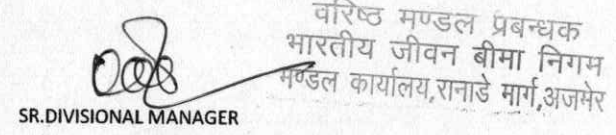 वरिष्ठ मण्डल प्रबन्धक
भारतीय जीवन बीमा निगम
मण्डल कार्यालय,रानाडे मार्ग,अजमेर
SR.DIVISIONAL MANAGER